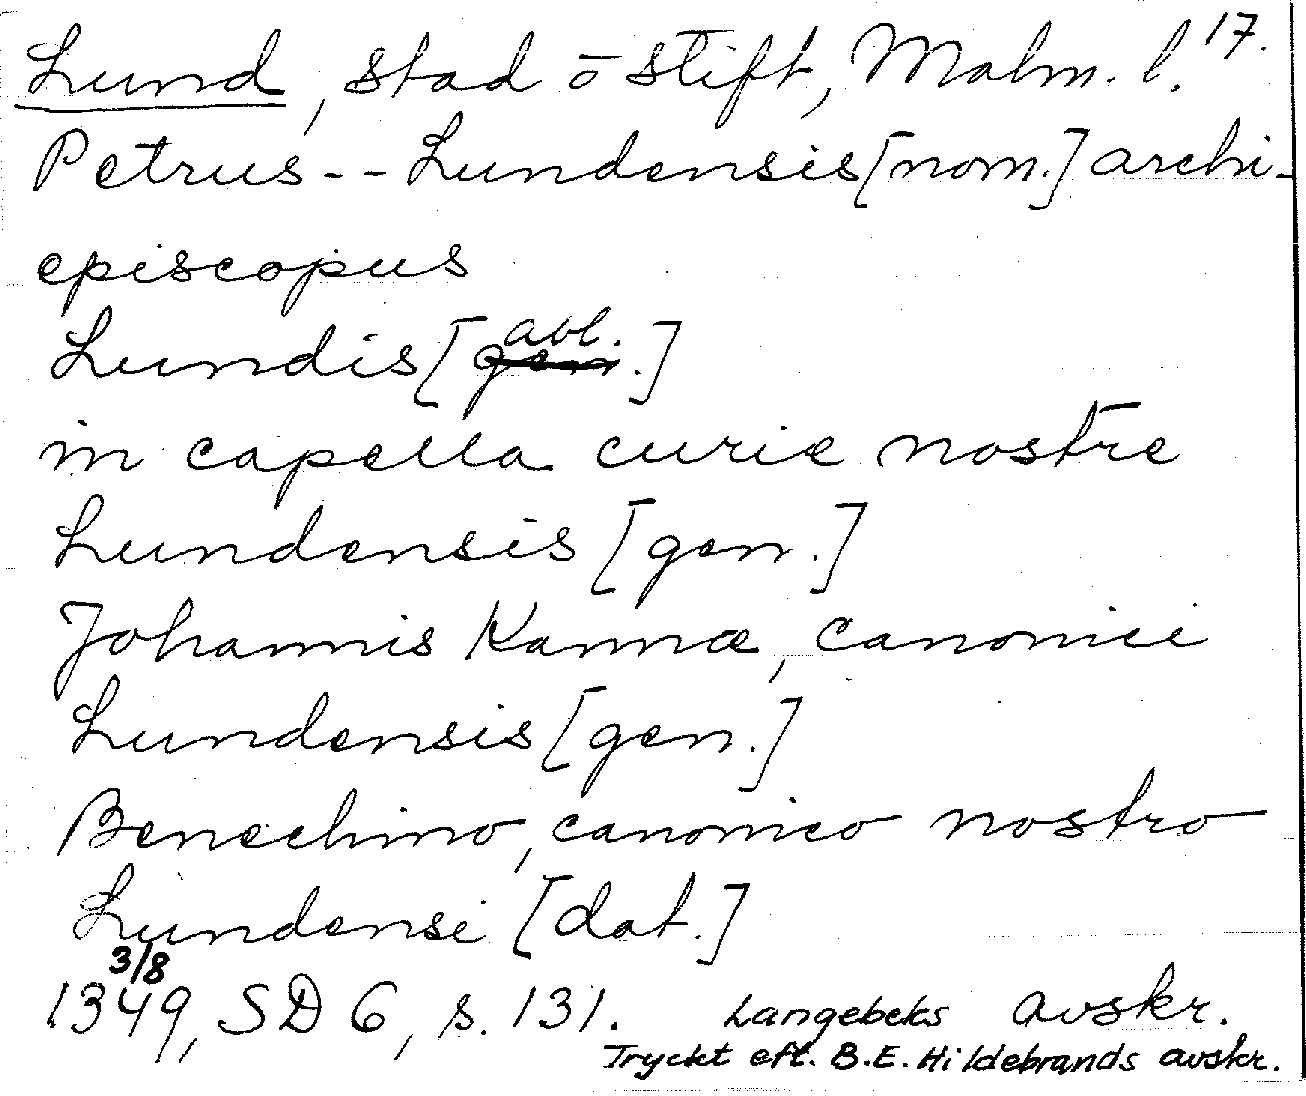 Lund, stad o stift, Malm. l. 17.
Petrus -- Lundensis [nom.] archi-
episcopus
Lundis [gen. abl.]
in capella curie nostre
Lundensis [gen.]
Johannis Kannæ, canonici
Lundensis [gen.]
Benechino, canonico nostro
Lundensi [dat.]
3/8
1349, SD 6, s. 131. Langebeks avskr.
Tryckt eft. B.E. Hildebrands avskr.